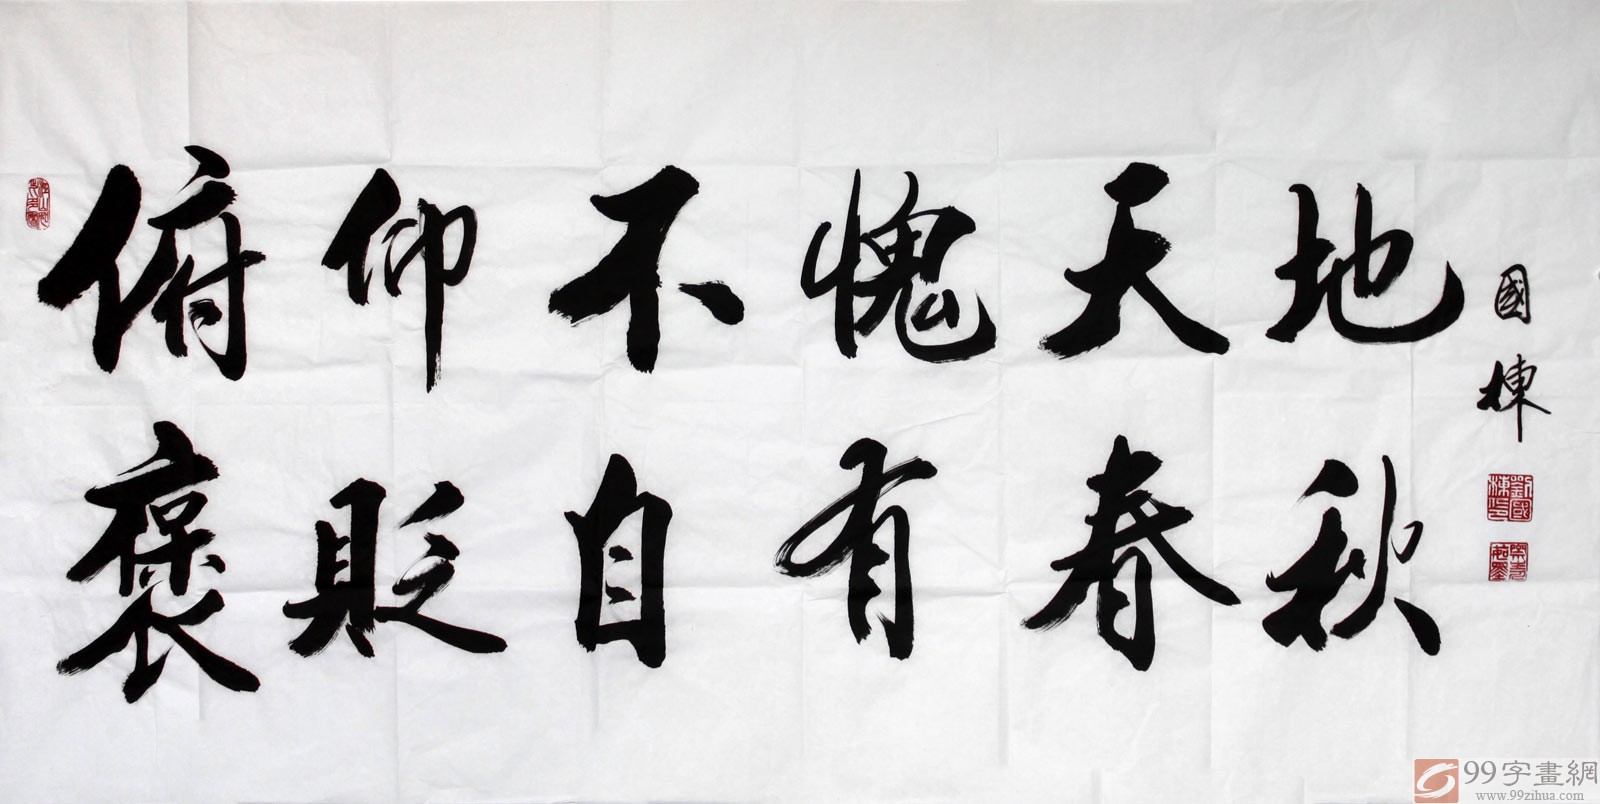 俯仰不愧天地
褒貶自有春秋
國棟
劉國棟印
99字畫網
www.99zihua.com